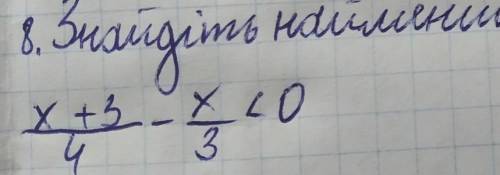 8. Знайдіть найменш
x + 3 / 4 - x / 3 < 0